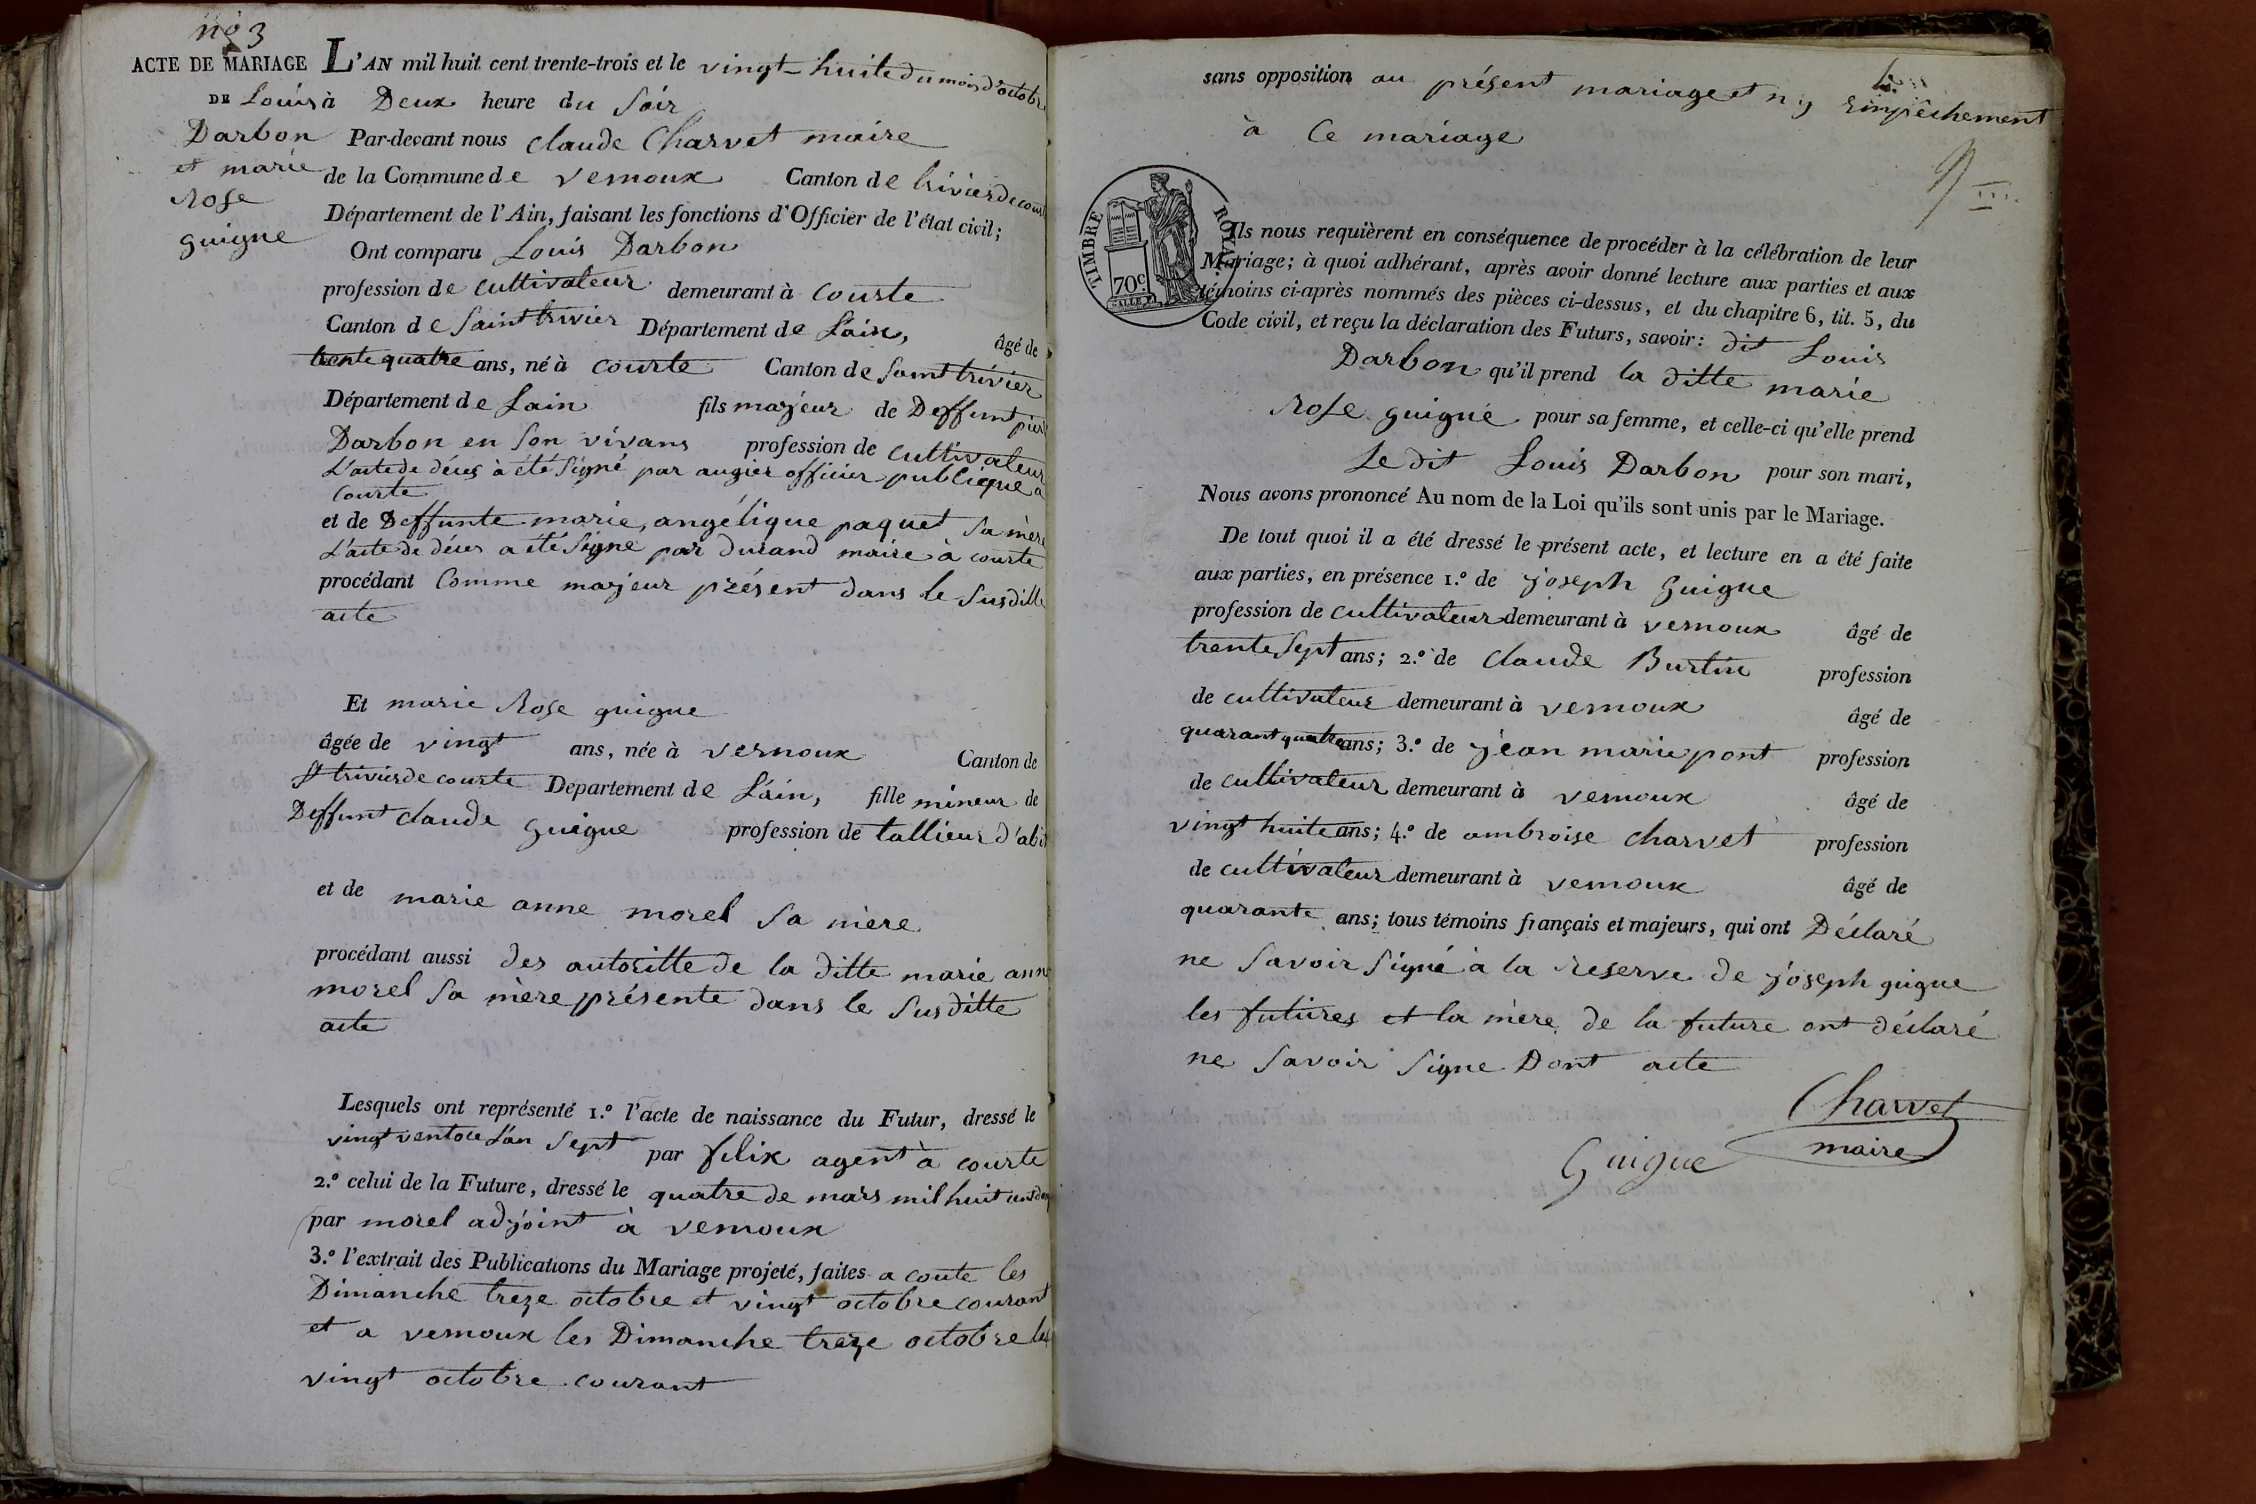 no 3
ACTE DE MARIAGE
DE Louis
Darbon
et marie
Rose
guigne
L'AN mil huit cent trente-trois et le vingt-huite du mois d'octobre
à Deux heure du soir
Par-devant nous claude Charvet maire
de la Commune de vernoux Canton de trivier de courte
Département de l'Ain, faisant les fonctions d'Officier de l'état civil;
Ont comparu Louis Darbon
profession de cultivateur demeurant à courte
Canton de Saint trivier Département de Lain,
âgé de
trente quatre ans, né à courte Canton de Saint trivier
Département de Lain fils majeur de Deffunt
Darbon en son vivans profession de cultivateur
L'acte de déces à été signé par augier officier publique a
courte
et de Deffunte marie, angélique paquet sa mère
L'acte de déces a été signé par durand maire à courte
procédant Comme majeur présent dans le susditte
acte
Et marie Rose guigne
âgée de vingt ans, née à vernoux Canton de
St trivier de courte Département de Lain, fille mineur de
Deffunt claude guigne profession de tallieur d'abit
et de marie anne morel sa mère
procédant aussi des autoritte de la ditte marie anne
morel sa mère présente dans le susditte
acte
Lesquels ont représenté 1.° l'acte de naissance du Futur, dressé le
vingt ventose L'an sept par felix agent à courte
2.° celui de la Future, dressé le quatre de mars mil huit cent
par morel adjoint à vernoux
3.° l'extrait des Publications du Mariage projeté, faites a courte les
Dimanche treze octobre et vingt octobre courant
et a vernoux les Dimanche treze octobre
vingt octobre courant
sans opposition au présent mariage et n y empêchement
à Ce mariage
TIMBRE ROYAL
70c.
Ils nous requièrent en conséquence de procéder à la célébration de leur
Mariage; à quoi adhérant, après avoir donné lecture aux parties et aux
témoins ci-après nommés des pièces ci-dessus, et du chapitre 6, tit. 5, du
Code civil, et reçu la déclaration des Futurs, savoir: dit Louis
Darbon qu'il prend la ditte marie
Rose guigne pour sa femme, et celle-ci qu'elle prend
Le dit Louis Darbon pour son mari,
Nous avons prononcé Au nom de la Loi qu'ils sont unis par le Mariage.
De tout quoi il a été dressé le présent acte, et lecture en a été faite
aux parties, en présence 1.° de joseph guigne
profession de cultivateur demeurant à vernoux âgé de
trente sept ans; 2.° de claude Burtin profession
de cultivateur demeurant à vernoux âgé de
quarant quatre ans; 3.° de jean marie pont profession
de cultivateur demeurant à vernoux âgé de
vingt huite ans; 4.° de ambroise charvet profession
de cultivateur demeurant à vernoux âgé de
quarante ans; tous témoins français et majeurs, qui ont Déclaré
ne savoir signé à la reserve de joseph guigne
les futures et la mère de la future ont déclaré
ne savoir signe Dont acte
Charvet
maire
Guigue